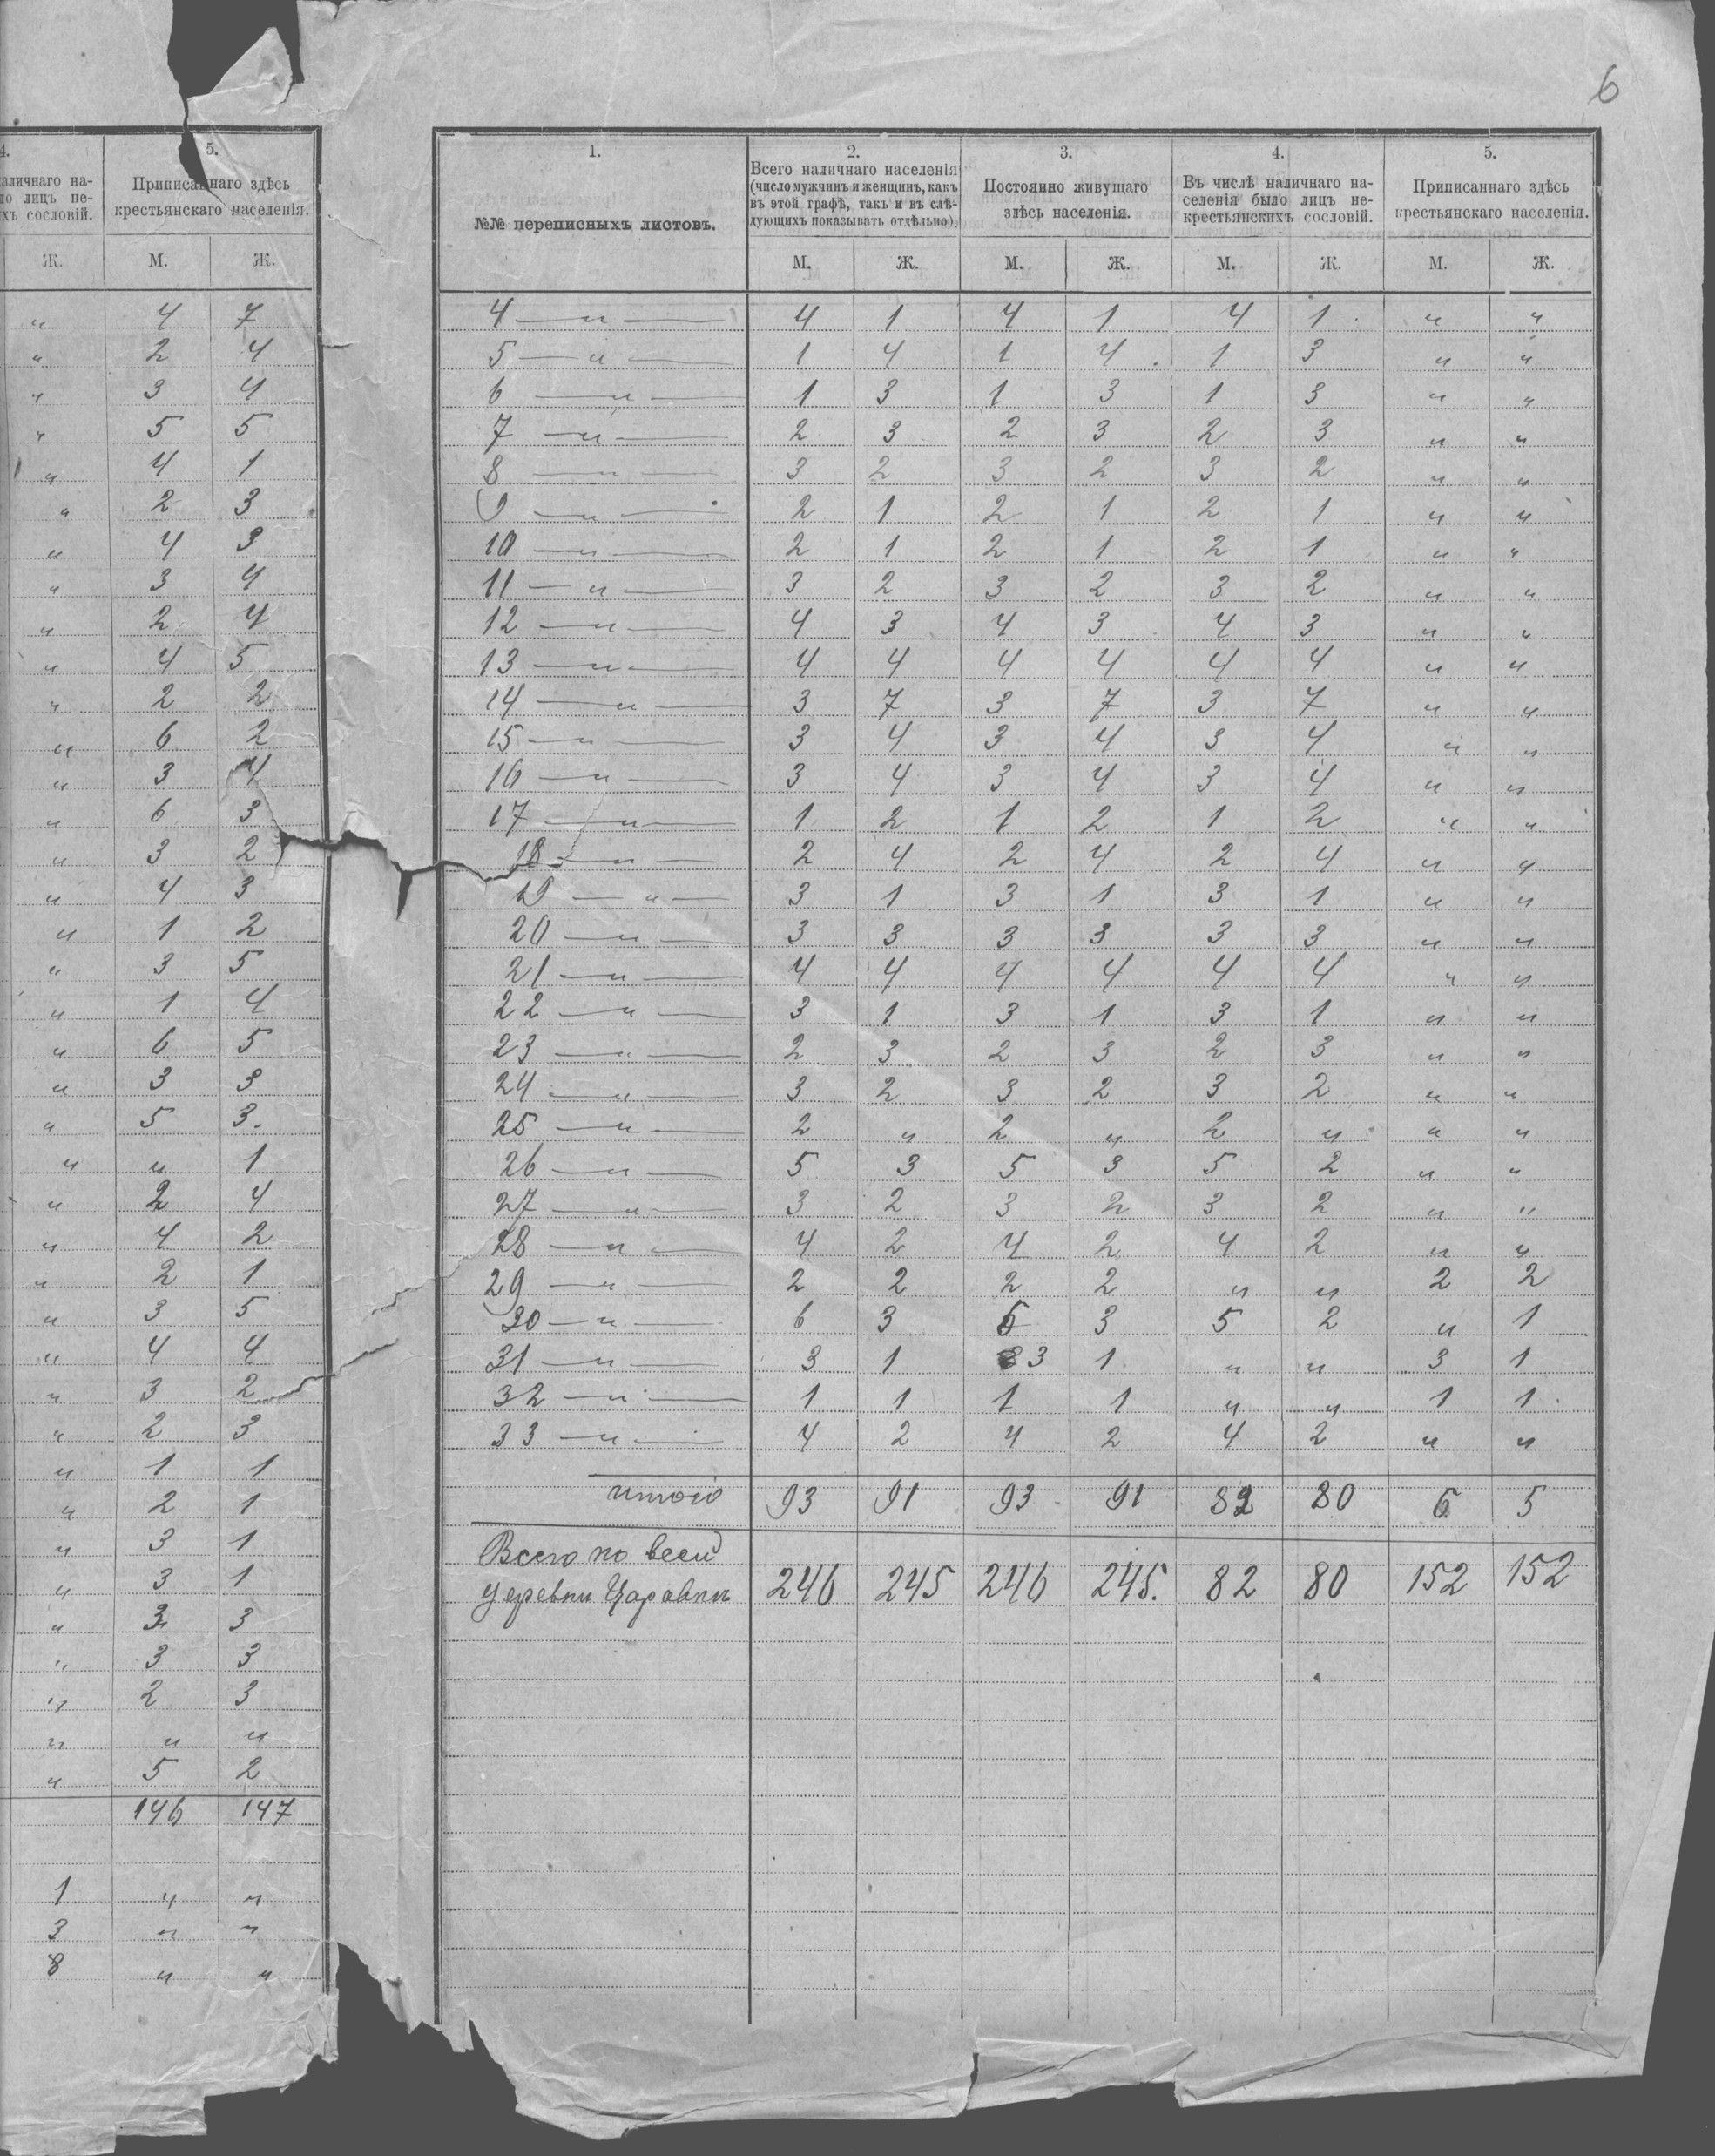 6
4.
аличнаго на-
ло лицъ не-
хъ сословій.
Ж.
5.
Приписаннаго здѣсь
крестьянскаго населенія.
М. Ж.
" 4 7
" 2 4
" 3 4
" 5 5
" 4 1
" 2 3
" 4 3
" 3 4
" 2 4
" 4 5
" 2 2
" 6 2
" 3 4
" 6 3
" 3 2
" 4 3
" 1 2
" 3 5
" 1 4
" 6 5
" 3 3
" 5 3.
" " 1
" 2 4
" 4 2
" 2 1
" 3 5
" 4 4
" 3 2
" 2 3
" 1 1
" 2 1
" 3 1
" 3 1
" 3 3
" 3 3
" 2 3
" " "
" 5 2
146 147
1 " "
3 " "
8 " "
1.
№№ переписныхъ листовъ.
2.
Всего наличнаго населенія
(число мужчинъ и женщинъ, какъ
въ этой графѣ, такъ и въ слѣ-
дующихъ показывать отдѣльно)
3.
Постоянно живущаго
здѣсь населенія.
4.
Въ числѣ наличнаго на-
селенія было лицъ не-
крестьянскихъ сословій.
5.
Приписаннаго здѣсь
крестьянскаго населенія.
М. Ж. М. Ж. М. Ж. М. Ж.
4 — " — 4 1 4 1 4 1 " "
5 — " — 1 4 1 4 1 3 " "
6 — " — 1 3 1 3 1 3 " "
7 — " — 2 3 2 3 2 3 " "
8 — " — 3 2 3 2 3 2 " "
9 — " — 2 1 2 1 2 1 " "
10 — " — 2 1 2 1 2 1 " "
11 — " — 3 2 3 2 3 2 " "
12 — " — 4 3 4 3 4 3 " "
13 — " — 4 4 4 4 4 4 " "
14 — " — 3 7 3 7 3 7 " "
15 — " — 3 4 3 4 3 4 " "
16 — " — 3 4 3 4 3 4 " "
17 — " — 1 2 1 2 1 2 " "
18 — " — 2 4 2 4 2 4 " "
19 — " — 3 1 3 1 3 1 " "
20 — " — 3 3 3 3 3 3 " "
21 — " — 4 4 4 4 4 4 " "
22 — " — 3 1 3 1 3 1 " "
23 — " — 2 3 2 3 2 3 " "
24 — " — 3 2 3 2 3 2 " "
25 — " — 2 " 2 " 2 " " "
26 — " — 5 3 5 3 5 2 " "
27 — " — 3 2 3 2 3 2 " "
28 — " — 4 2 4 2 4 2 " "
29 — " — 2 2 2 2 " " 2 2
30 — " — 6 3 6 3 5 2 " 1
31 — " — 3 1 3 1 " " 3 1
32 — " — 1 1 1 1 " " 1 1
33 — " — 4 2 4 2 4 2 " "
итого 93 91 93 91 82 80 6 5
Всего по всей
деревни Царовки 246 245 246 245. 82 80 152 152